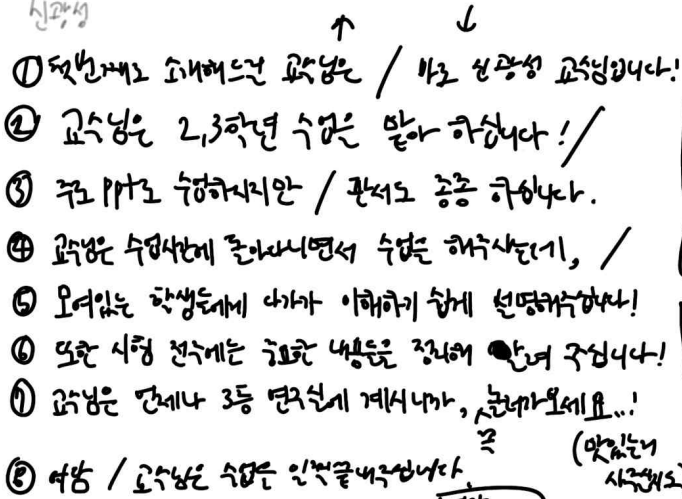 신광성
① 첫번째로 소개해드릴 교수님은 / 바로 신광성 교수님입니다!
② 교수님은 2,3학년 수업을 맡아 하십니다! /
③ 주로 PPT로 수업하시지만 / 판서도 종종 하십니다.
④ 교수님은 수업시간에 돌아다니면서 수업을 해주시는데, /
⑤ 모여있는 학생들에게 다가가 이해하기 쉽게 설명해주십니다!
⑥ 또한 시험 전주에는 중요한 내용들을 정리해 알려 주십니다!
⑦ 교수님은 언제나 3등 연구실에 계시니까, 놀러가보세요..!
꼭
(맛있는거
⑧ / 교수님은 수업을 일찍끝내주십니다.